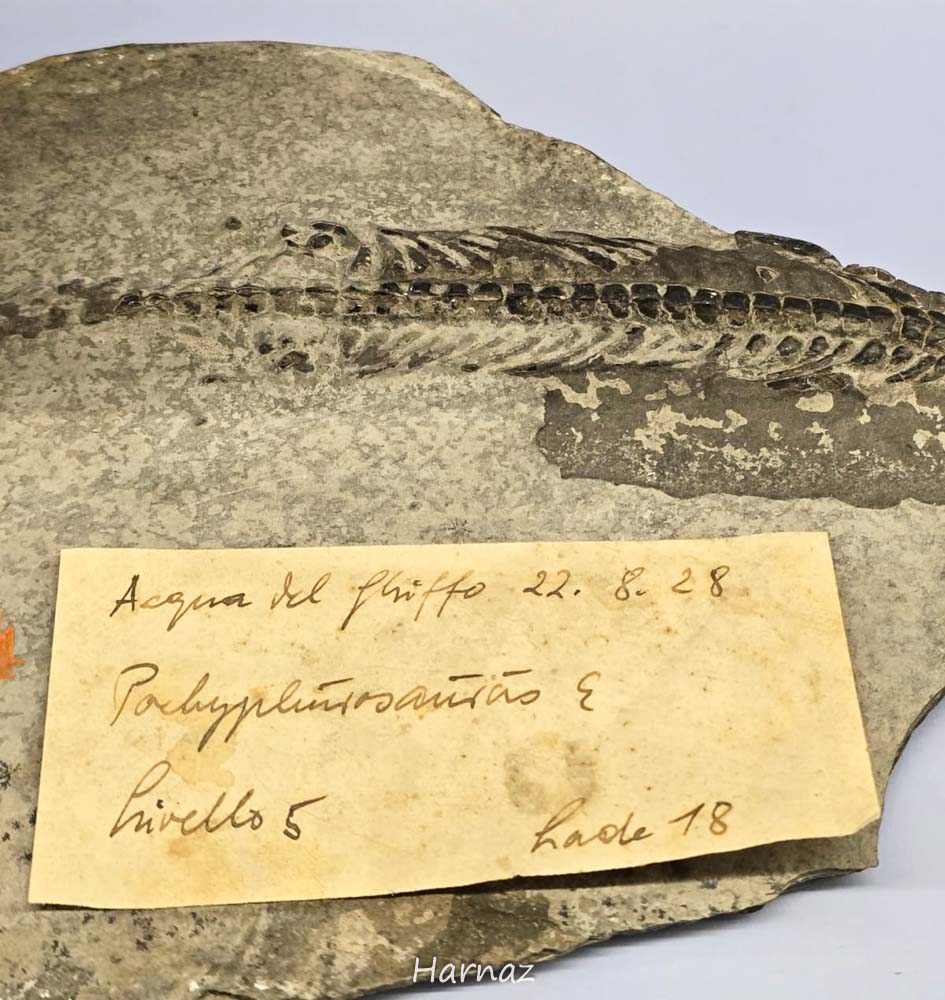 Acqua del Ghiffo 22. 8. 28
Pachypleurosaurus E
Livello 5
Lade 18
Harnaz